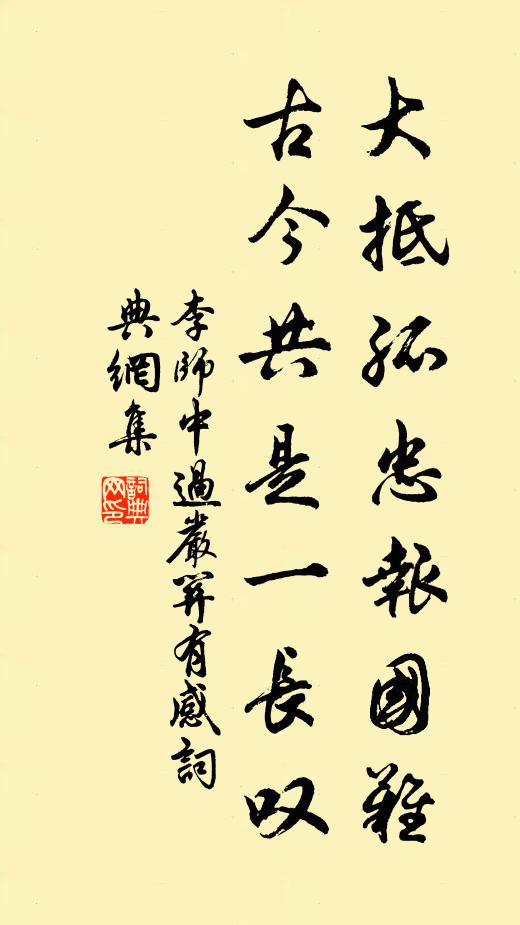 大抵孤忠報國難
古今共是一長叹
李師中過嚴關有感詞
典網集
詞典網印